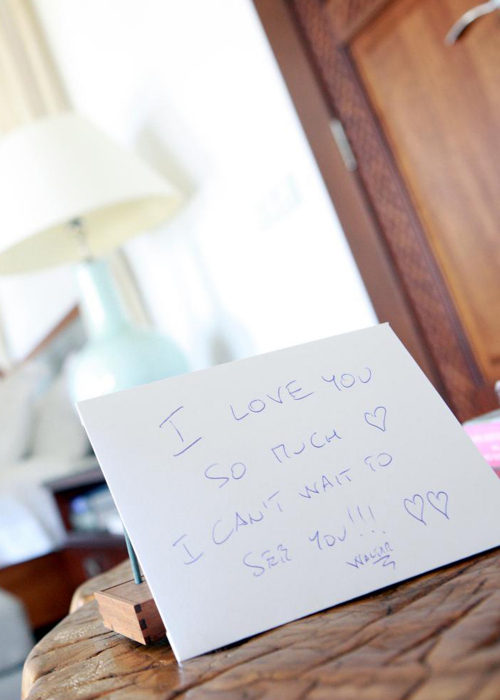 I LOVE YOU
SO MUCH ♡
I CAN'T WAIT TO
SEE YOU!!! ♡♡